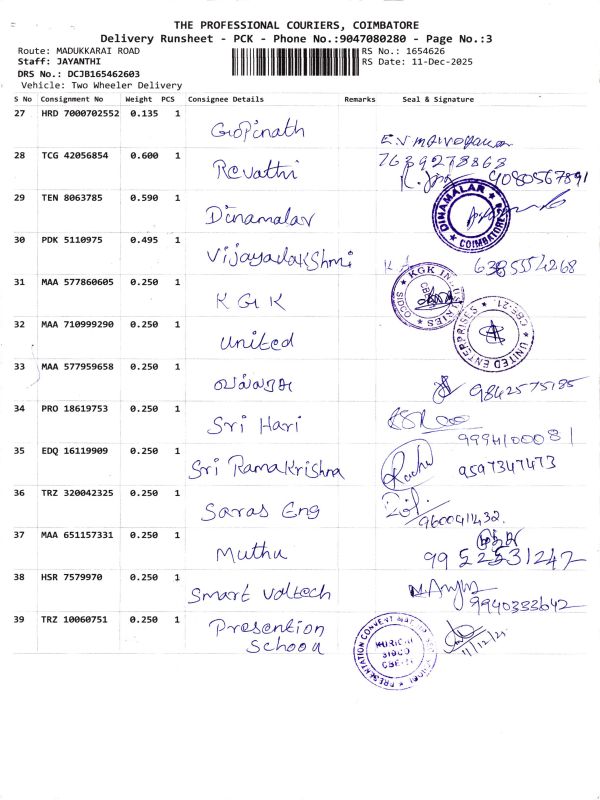 THE PROFESSIONAL COURIERS, COIMBATORE
Delivery Runsheet - PCK - Phone No.:9047080280 - Page No.:3
Route: MADUKKARAI ROAD RS No.: 1654626
Staff: JAYANTHI RS Date: 11-Dec-2025
DRS No.: DCJB165462603
Vehicle: Two Wheeler Delivery
S No Consignment No Weight PCS Consignee Details Remarks Seal & Signature
27 HRD 7000702552 0.135 1 Gopinath
28 TCG 42056854 0.600 1 Revathi 7639278868
9080567891
29 TEN 8063785 0.590 1 Dinamalar DINAMALAR COIMBATORE
30 PDK 5110975 0.495 1 Vijayalakshmi 6385554268
31 MAA 577860605 0.250 1 KGK KGK INDUSTRIES SIDCO
32 MAA 710999290 0.250 1 United UNITED ENTERPRISES CBE-21
33 MAA 577959658 0.250 1 9842575185
34 PRO 18619753 0.250 1 Sri Hari
9994100081
35 EDQ 16119909 0.250 1 Sri Ramakrishna 9597347473
36 TRZ 320042325 0.250 1 Saras Eng 9600411432
37 MAA 651157331 0.250 1 Muthu 9952531247
38 HSR 7579970 0.250 1 Smart Voltech
9940333642
39 TRZ 10060751 0.250 1 Presention
School KURICHI SIDCO 11/12/25